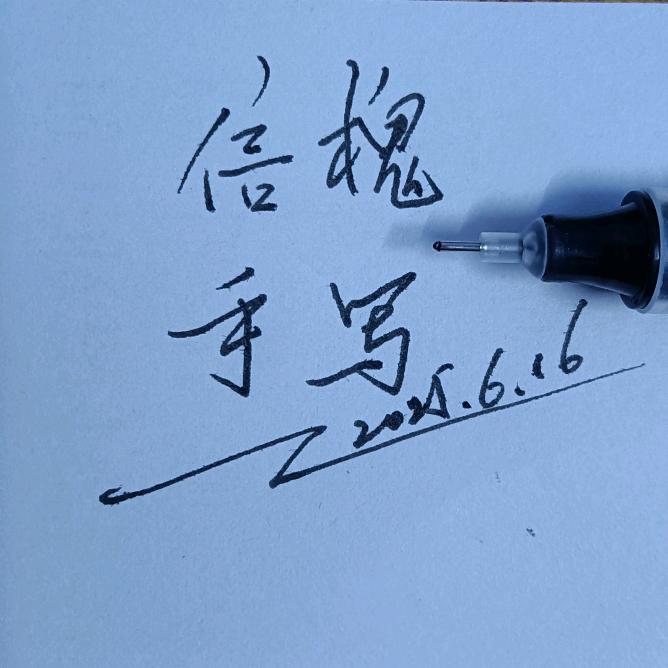 倍槐
手写
2025.6.16